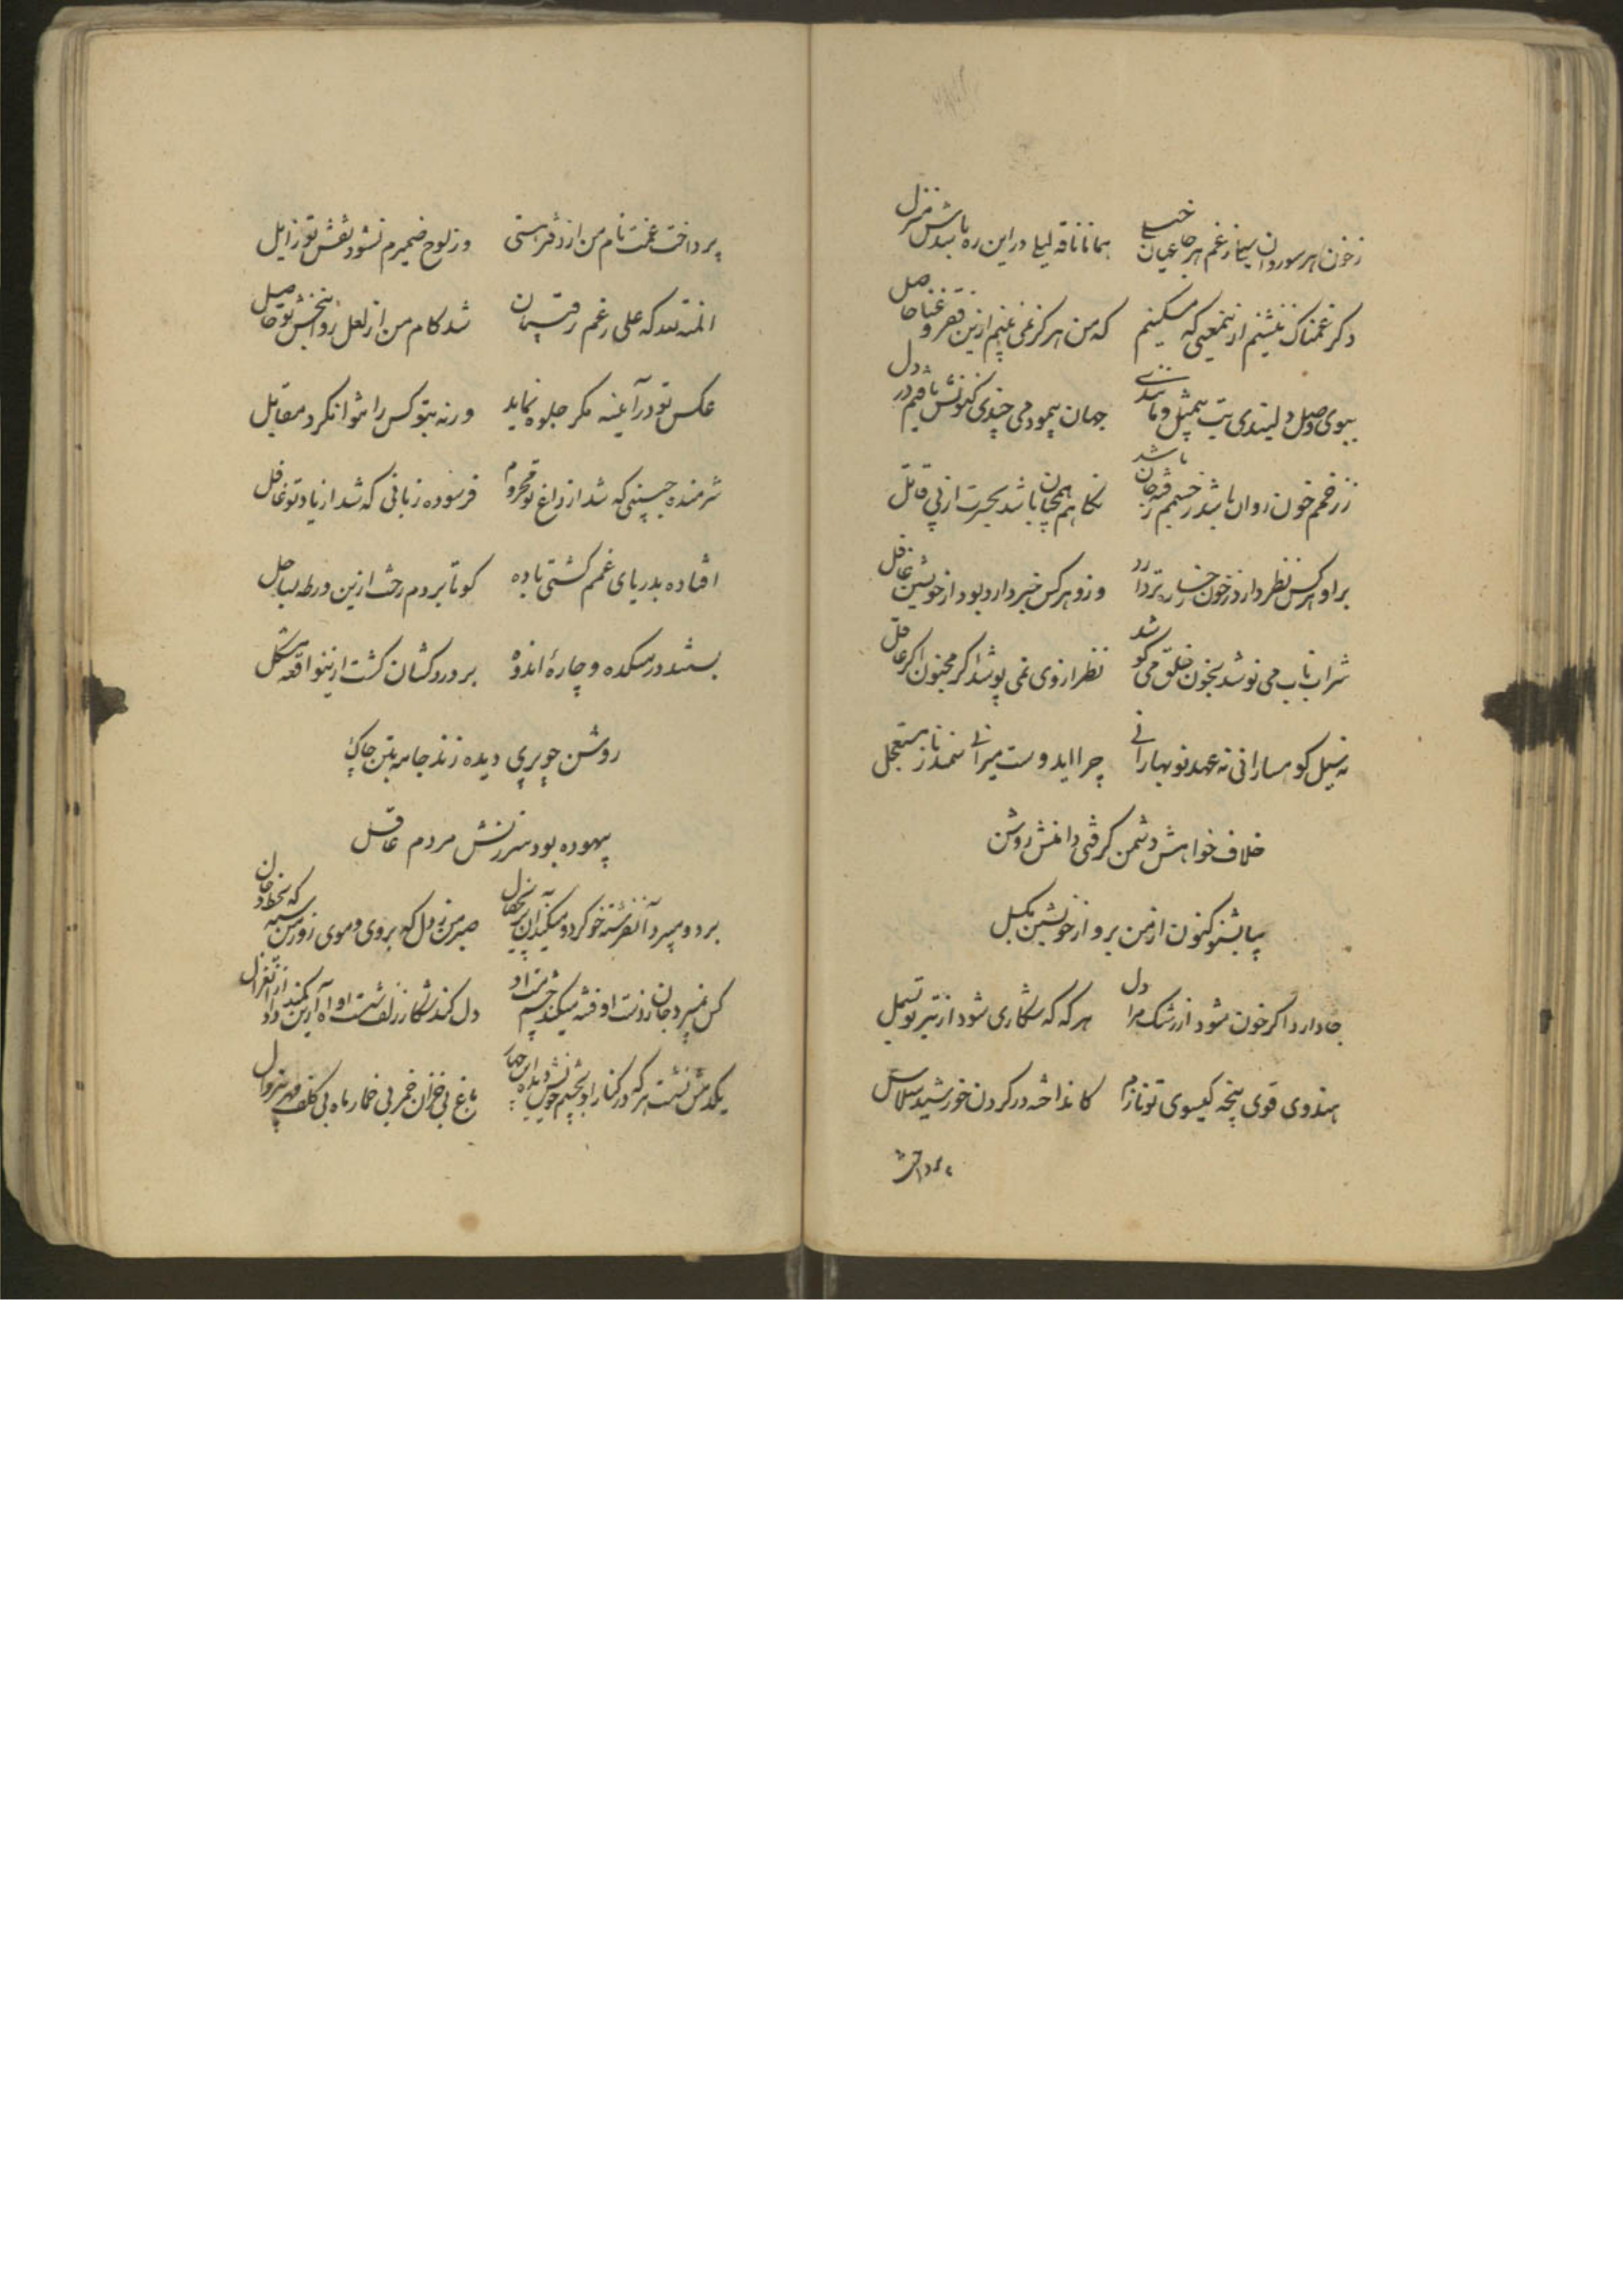 زخون هر سو روان سیلی ز غم هر جا عیان خیلی همانا ناقه لیلی در این ره باشدش منزل
دگر غمناک ننشینم از ینمعنی که مسکینم که من هرگز نمی بینم ازین فقر و غنا حاصل
ببوی وصل دلبندی بت بیمثل و مانندی جهان پیمودمی چندی کنونش یافتم در دل
ز زخمم خون روان باشد ز جسمم رفته جان باشد نگاهم همچنان باشد بحسرت از پی قاتل
بر او هر کس نظر دارد ز خون رخساره تر دارد وزو هر کس خبر دارد بود از خویشتن غافل
شراب ناب می نوشد بخون خلق می کوشد نظر از وی نمی پوشد اگر مجنون اگر عاقل
نه سیل کوهسارانی نه عهد نوبهارانی چرا ایدوست میرانی سمند ناز مستعجل
خلاف خواهش دشمن گرفتی دامنش روشن
بیا بشنو کنون از من برو از خویشتن بگسل
جا دارد اگر خون شود از رشک مرا دل هر گه که شکاری شود از تیر تو بسمل
هندوی قوی پنجه گیسوی تو نازم کانداخته در گردن خورشید سلاسل
پرداخت
پرداخت غمت نام من از دفتر هستی وز لوح ضمیرم نشود نقش تو زایل
المنة لله که علی رغم رقیبان شد کام من از لعل روانبخش تو حاصل
عکس تو در آیینه مگر جلوه نماید ورنه بتو کس را نتوان کرد مقابل
شرمنده جبینی که شد از داغ تو محروم فرسوده زبانی که شد از یاد تو غافل
افتاده بدریای غمم کشتی باده کو تا بروم رخت ازین ورطه بساحل
بستند در میکده و چارهٔ اندوه بر دردکشان گشت ازینواقعه مشکل
روشن چو پری دیده زند جامه بتن چاک
بیهوده بود سرزنش مردم عاقل
برد و سپرد آنفرشته خو کرد و میکند آن صبر من ز دل که بروی و موی زور من که بخط و خال
کس نبرد جان ز دست او فتنه میکند چشم مست او دل کند شکار زلف شست او آه ازین کمند داد از آن غزال
یکدمش نشست هر که در کنار او بچشم خویش دید باغ بی خزان خمر بی خمار ماه بی کلف مهر بی زوال